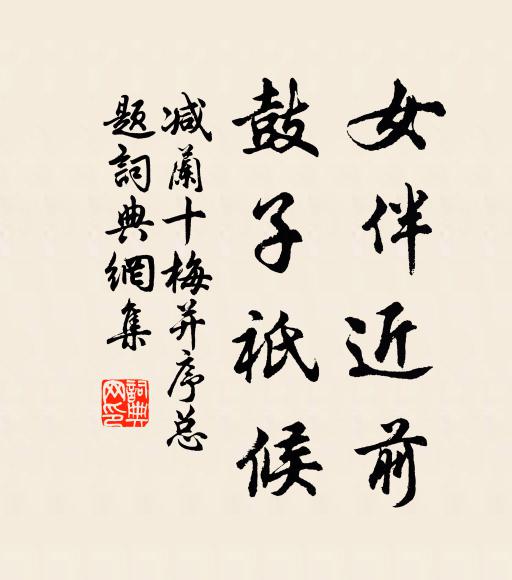 女伴近前
鼓子祇候
减蘭十梅并序总
题詞典網集
詞典
网印